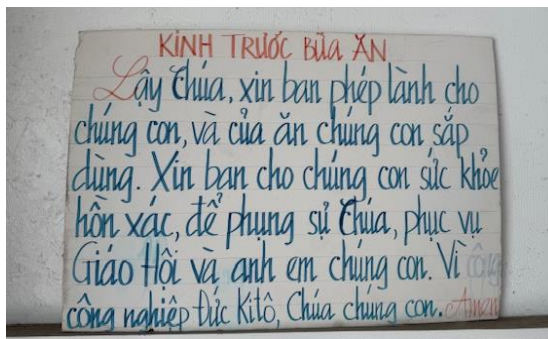 KINH TRƯỚC BỮA ĂN
Lậy Chúa, xin ban phép lành cho
chúng con, và của ăn chúng con sắp
dùng. Xin ban cho chúng con sức khỏe
hồn xác, để phụng sự Chúa, phục vụ
Giáo Hội và anh em chúng con. Vì công
công nghiệp Đức Kitô, Chúa chúng con. Amen